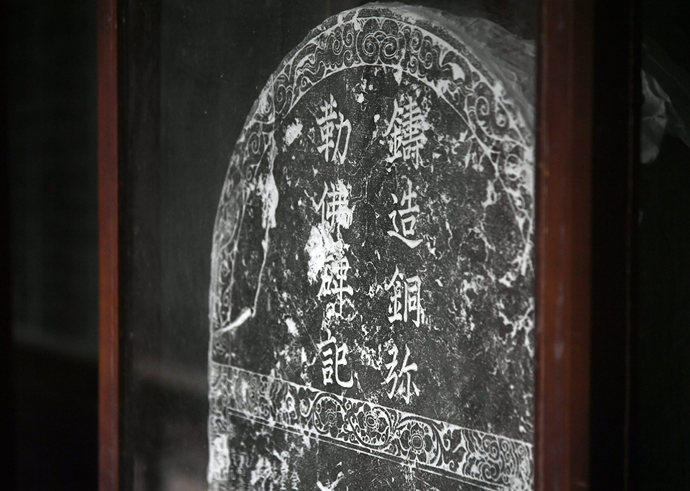 鑄造銅弥
勒佛碑記